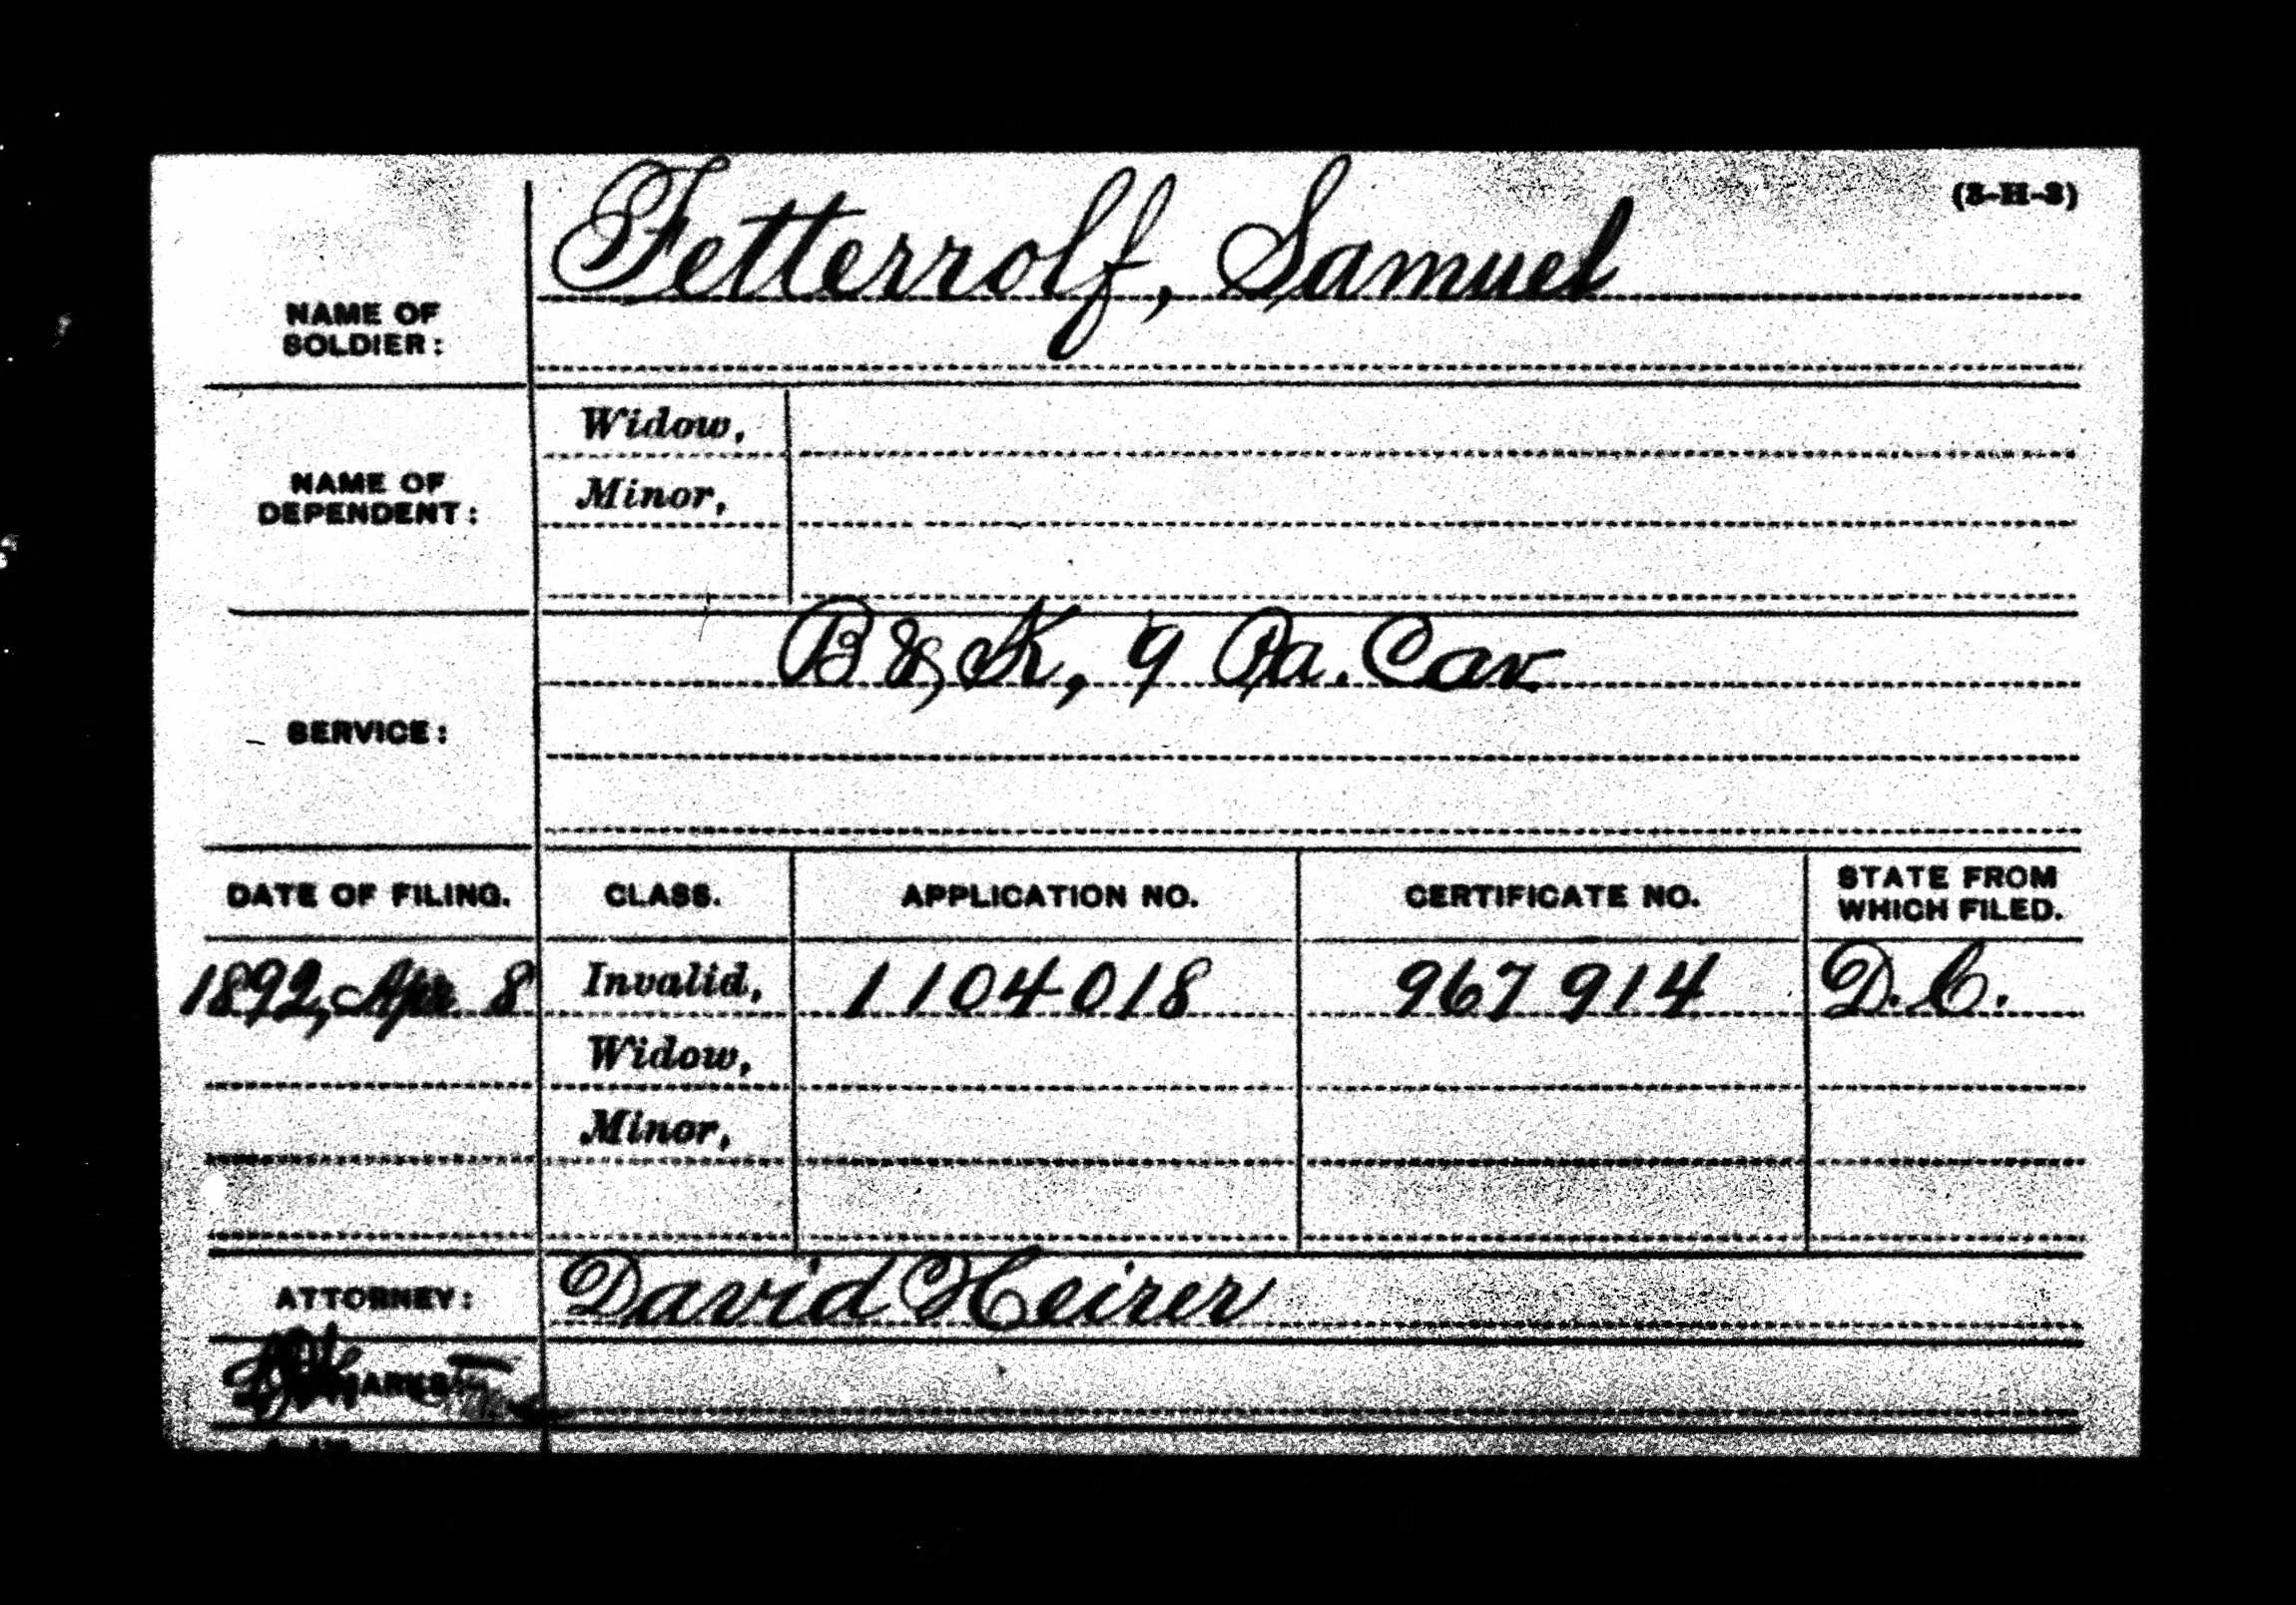 (3-H-3)
Fetterrolf, Samuel
NAME OF
SOLDIER:
Widow,
NAME OF
DEPENDENT:
Minor,
B & K, 9 Pa. Cav
SERVICE:
DATE OF FILING. CLASS. APPLICATION NO. CERTIFICATE NO. STATE FROM
WHICH FILED.
1892, Apr 8 Invalid, 1104018 967914 D.C.
Widow,
Minor,
ATTORNEY: David Heirer